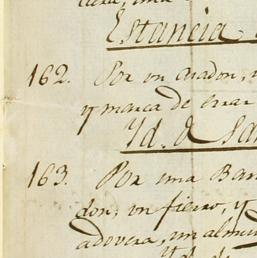 Estancia
162. Por un Aradon,
y marca de errar
Yd. de San
163. Por una Bar
don, un fierro, y
adovera, un almu